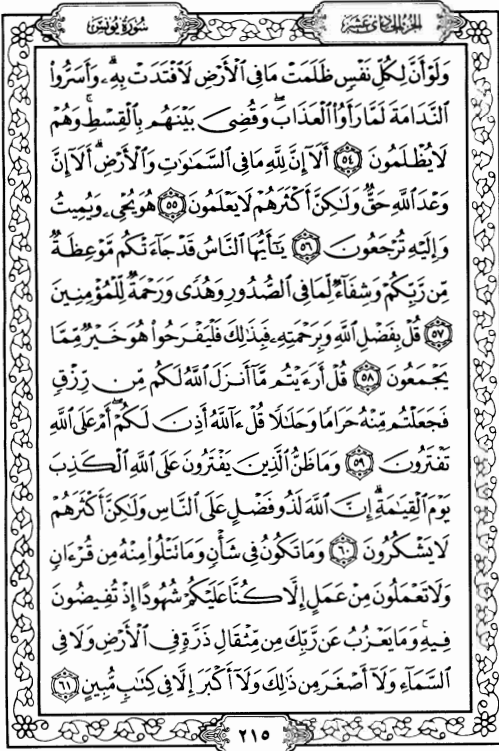 الجزء الحادي عشر
سورة يونس
وَلَوْ أَنَّ لِكُلِّ نَفْسٍ ظَلَمَتْ مَا فِي الْأَرْضِ لَافْتَدَتْ بِهِۦ ۗ وَأَسَرُّوا۟
النَّدَامَةَ لَمَّا رَأَوُا۟ الْعَذَابَ ۖ وَقُضِيَ بَيْنَهُم بِالْقِسْطِ ۚ وَهُمْ
لَا يُظْلَمُونَ ﴿٥٤﴾ أَلَآ إِنَّ لِلَّهِ مَا فِي السَّمَٰوَٰتِ وَالْأَرْضِ ۗ أَلَآ إِنَّ
وَعْدَ اللَّهِ حَقٌّ وَلَٰكِنَّ أَكْثَرَهُمْ لَا يَعْلَمُونَ ﴿٥٥﴾ هُوَ يُحْيِۦ وَيُمِيتُ
وَإِلَيْهِ تُرْجَعُونَ ﴿٥٦﴾ يَٰٓأَيُّهَا النَّاسُ قَدْ جَآءَتْكُم مَّوْعِظَةٌ
مِّن رَّبِّكُمْ وَشِفَآءٌ لِّمَا فِي الصُّدُورِ وَهُدًى وَرَحْمَةٌ لِّلْمُؤْمِنِينَ
﴿٥٧﴾ قُلْ بِفَضْلِ اللَّهِ وَبِرَحْمَتِهِۦ فَبِذَٰلِكَ فَلْيَفْرَحُوا۟ هُوَ خَيْرٌ مِّمَّا
يَجْمَعُونَ ﴿٥٨﴾ قُلْ أَرَءَيْتُم مَّآ أَنزَلَ اللَّهُ لَكُم مِّن رِّزْقٍ
فَجَعَلْتُم مِّنْهُ حَرَامًا وَحَلَٰلًا قُلْ ءَآللَّهُ أَذِنَ لَكُمْ ۖ أَمْ عَلَى اللَّهِ
تَفْتَرُونَ ﴿٥٩﴾ وَمَا ظَنُّ الَّذِينَ يَفْتَرُونَ عَلَى اللَّهِ الْكَذِبَ
يَوْمَ الْقِيَٰمَةِ ۗ إِنَّ اللَّهَ لَذُو فَضْلٍ عَلَى النَّاسِ وَلَٰكِنَّ أَكْثَرَهُمْ
لَا يَشْكُرُونَ ﴿٦٠﴾ وَمَا تَكُونُ فِي شَأْنٍ وَمَا تَتْلُوا۟ مِنْهُ مِن قُرْءَانٍ
وَلَا تَعْمَلُونَ مِنْ عَمَلٍ إِلَّا كُنَّا عَلَيْكُمْ شُهُودًا إِذْ تُفِيضُونَ
فِيهِ ۚ وَمَا يَعْزُبُ عَن رَّبِّكَ مِن مِّثْقَالِ ذَرَّةٍ فِي الْأَرْضِ وَلَا فِي
السَّمَآءِ وَلَآ أَصْغَرَ مِن ذَٰلِكَ وَلَآ أَكْبَرَ إِلَّا فِي كِتَٰبٍ مُّبِينٍ ﴿٦١﴾
٢١٥